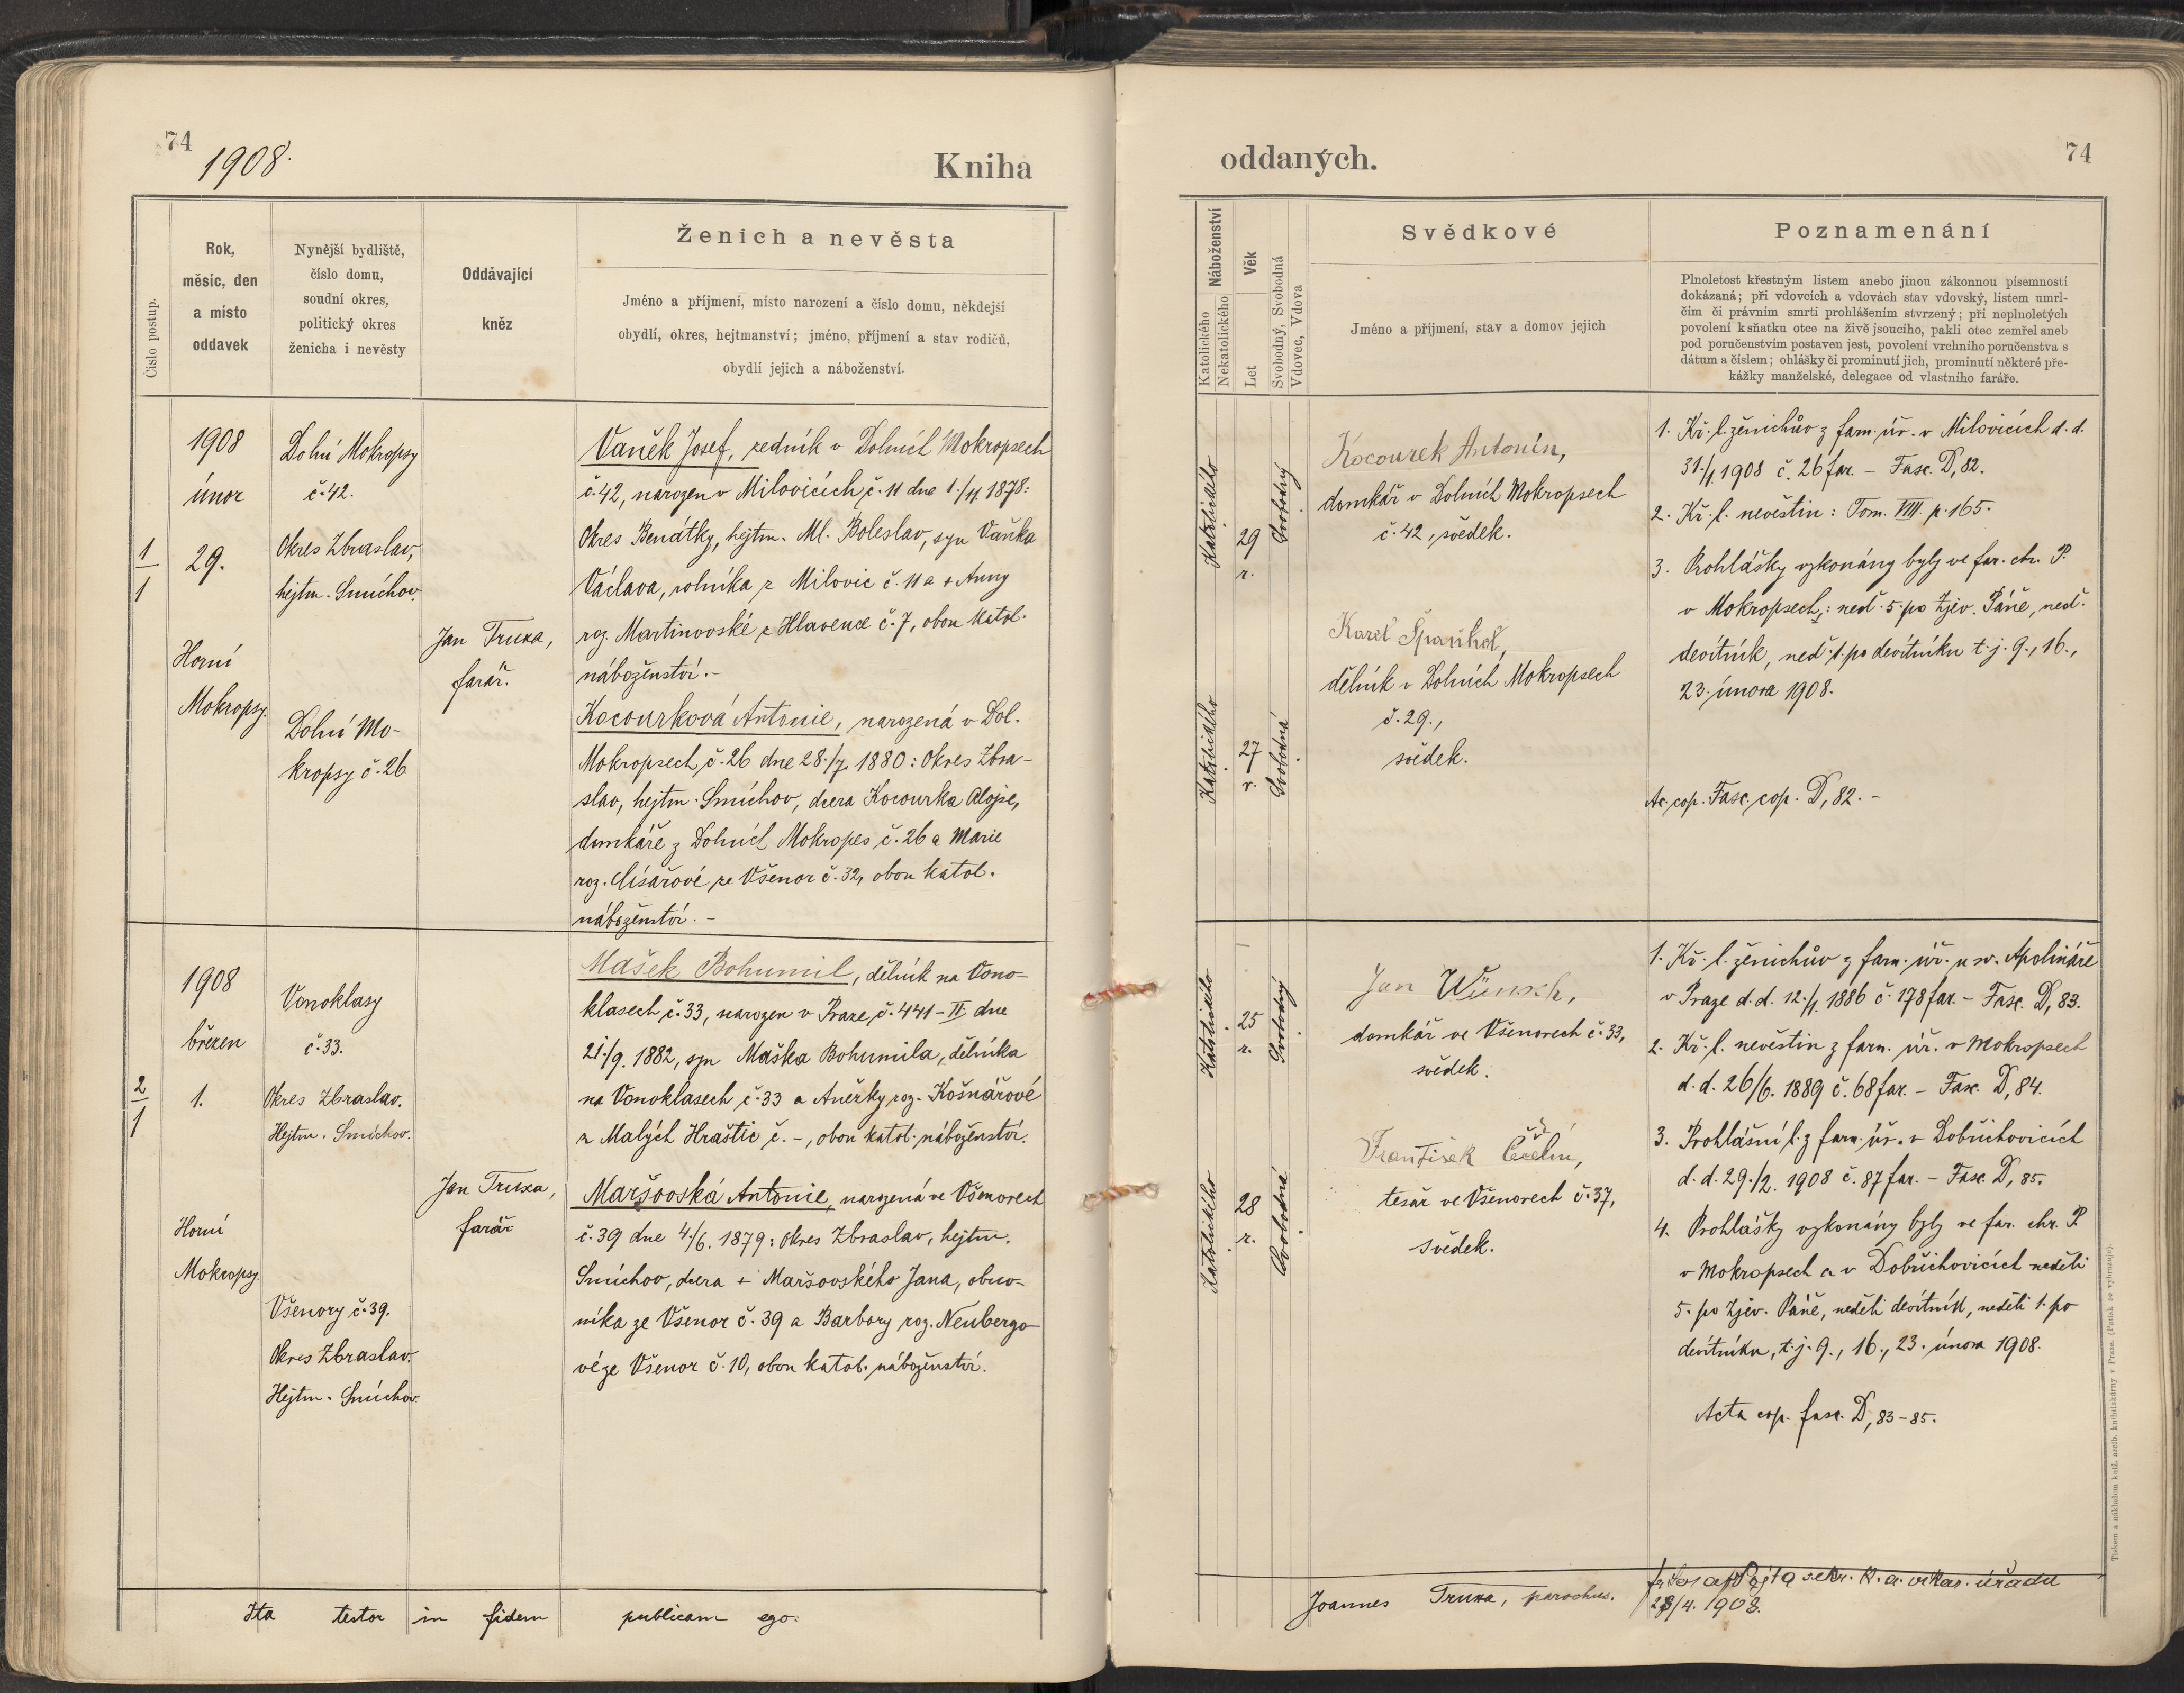 74
1908.
Kniha
Číslo postup.
Rok,
měsíc, den
a místo
oddavek
Nynější bydliště,
číslo domu,
soudní okres,
politický okres
ženicha i nevěsty
Oddávající
kněz
Ženich a nevěsta
Jméno a příjmení, místo narození a číslo domu, někdejší
obydlí, okres, hejtmanství; jméno, příjmení a stav rodičů,
obydlí jejich a náboženství.
1
1
1908
únor
29.
Horní
Mokropsy.
Dolní Mokropsy
č. 42.
Okres Zbraslav,
hejtm. Smíchov.
Dolní Mo-
kropsy č. 26
Jan Truxa,
farář.
Vaněk Josef, zedník v Dolních Mokropsech
č. 42, narozen v Milovicích č. 11 dne 1./4. 1878:
Okres Benátky, hejtm. Ml. Boleslav, syn Vaňka
Václava, rolníka z Milovic č. 11 a + Anny
roz. Martinovské z Hlavence č. 7, obou katol.
náboženství. -
Kocourková Antonie, narozená v Dol.
Mokropsech č. 26 dne 28./7. 1880: Okres Zbra-
slav, hejtm. Smíchov, dcera Kocourka Aloise,
domkáře z Dolních Mokropes č. 26 a Marie
roz. Císařové ze Všenor č. 32, obou katol.
náboženství. -
2
1
1908
březen
1.
Horní
Mokropsy.
Vonoklasy
č. 33.
Okres Zbraslav.
Hejtm. Smíchov.
Všenory č. 39.
Okres Zbraslav.
Hejtm. Smíchov.
Jan Truxa,
farář
Mašek Bohumil, dělník na Vono-
klasech č. 33, narozen v Praze, č. 441-II dne
21./9. 1882, syn Maška Bohumila, dělníka
na Vonoklasech č. 33 a Anežky roz. Košnářové
z Malých Hraštic č. -, obou katol. náboženství.
Maršovská Antonie, narozená ve Všenorech
č. 39 dne 4./6. 1879: Okres Zbraslav, hejtm.
Smíchov, dcera + Maršovského Jana, obuv-
níka ze Všenor č. 39 a Barbory roz. Neubergo-
vé ze Všenor č. 10, obou katol. náboženství.
Ita testor in fidem publicam ego:
oddaných.
74
Katolického
Nekatolického
Náboženství
Let
Věk
Svobodný, Svobodná
Vdovec, Vdova
Svědkové
Jméno a příjmení, stav a domov jejich
Poznamenání
Plnoletost křestným listem anebo jinou zákonnou písemností
dokázaná; při vdovcích a vdovách stav vdovský, listem umrl-
čím či právním smrti prohlášením stvrzený; při neplnoletých
povolení k sňatku otce na živě jsoucího, pakli otec zemřel aneb
pod poručenstvím postaven jest, povolení vrchního poručenstva s
dátum a číslem; ohlášky či prominutí jich, prominutí některé pře-
kážky manželské, delegace od vlastního faráře.
Katolického
29
r.
Svobodný
Katolického
27
r.
Svobodná
Kocourek Antonín,
domkář v Dolních Mokropsech
č. 42, svědek.
Karel Španihel,
dělník v Dolních Mokropsech
č. 29.,
svědek.
1. Kř. l. ženichův z farn. úř. v Milovicích d. d.
31./1. 1908 č. 26 far. - Fasc. D, 82.
2. Kř. l. nevěstin: Tom. VIII. p. 165.
3. Prohlášky vykonány byly ve far. chr. P.
v Mokropsech: ned. 5. po Zjev. Páně, ned.
devítník, ned. 1. po devítníku t. j. 9., 16.,
23. února 1908.
Ac. cop. Fasc. cop. D, 82. -
Katolického
25
r.
Svobodný
Katolického
28
r.
Svobodná
Jan Wünsch,
domkář ve Všenorech č. 33,
svědek.
František Čečelín,
tesař ve Všenorech č. 37,
svědek.
1. Kř. l. ženichův z farn. úř. u sv. Apolináře
v Praze d. d. 12./1. 1886 č. 178 far. - Fasc. D, 83.
2. Kř. l. nevěstin z farn. úř. v Mokropsech
d. d. 26/6. 1889 č. 68 far. - Fasc. D, 84.
3. Prohlášní l. z farn. úř. v Dobřichovicích
d. d. 29./2. 1908 č. 87 far. - Fasc. D, 85.
4. Prohlášky vykonány byly ve far. chr. P.
v Mokropsech a v Dobřichovicích neděli
5. po Zjev. Páně, neděli devítník, neděli 1. po
devítníku, t. j. 9., 16., 23. února 1908.
Acta cop. fasc. D, 83-85.
Joannes Truxa, parochus.
sekr. k. a. vikar. úřadu
/4. 1908.
Tiskem a nákladem kníž. arcib. knihtiskárny v Praze. (Patisk se vyhrazuje).